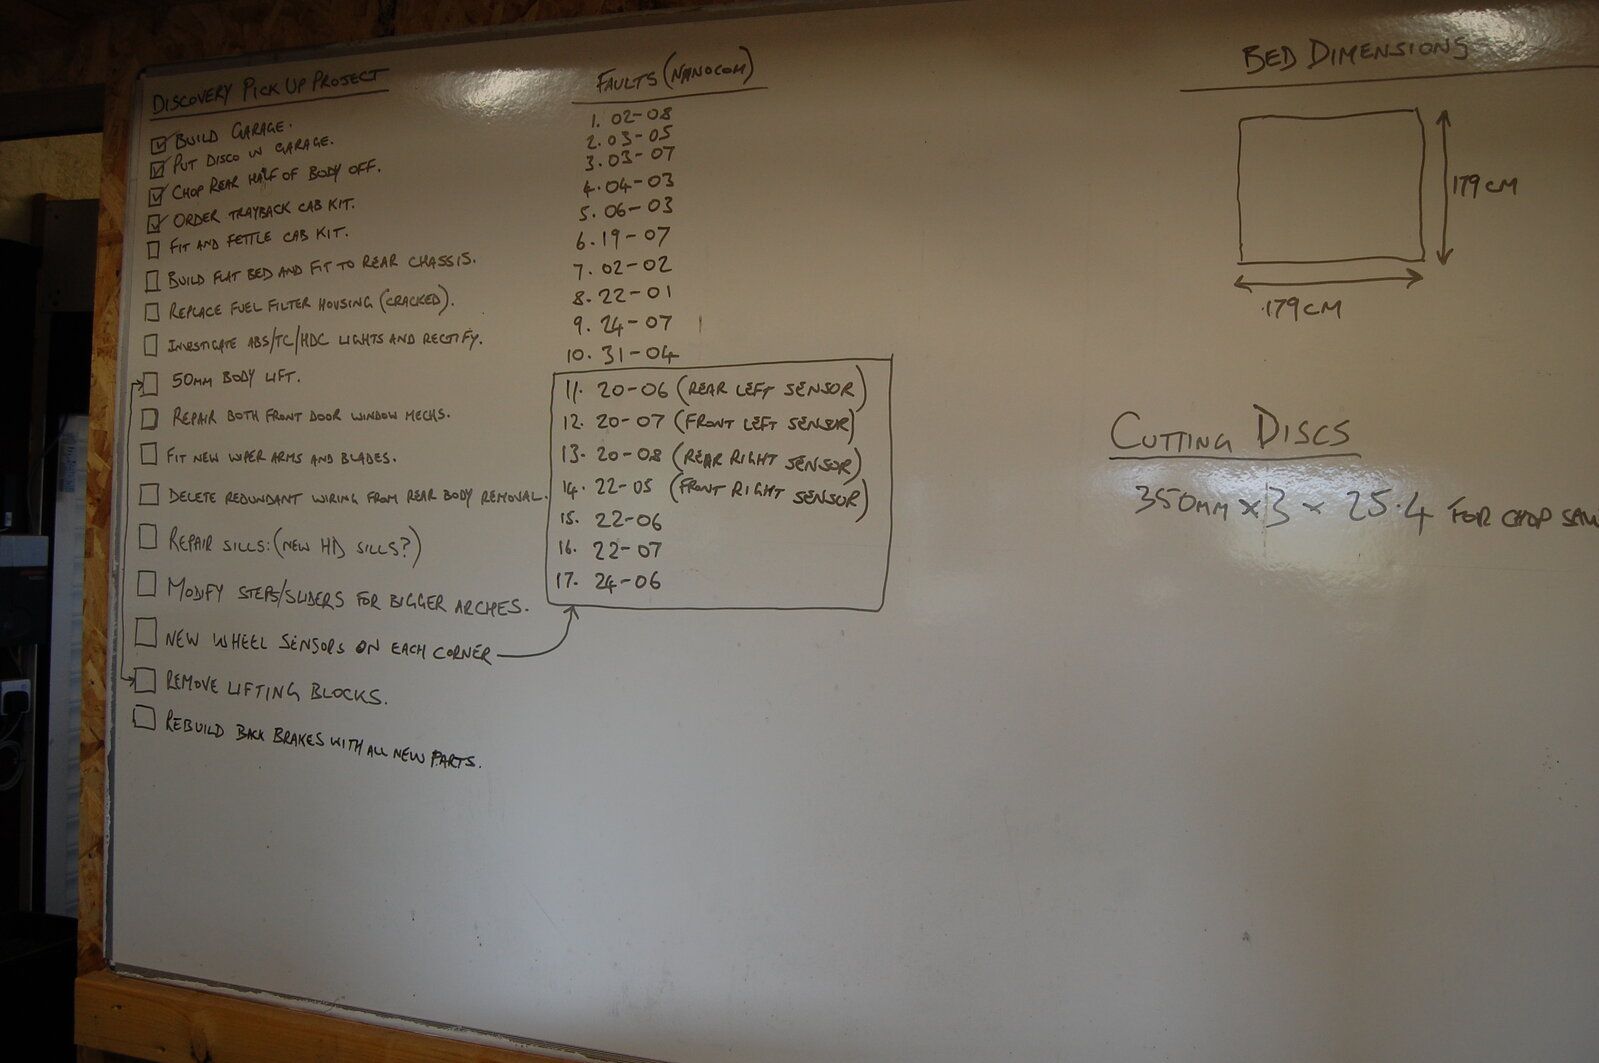 DISCOVERY PICK UP PROJECT
BUILD GARAGE.
PUT DISCO IN GARAGE.
CHOP REAR HALF OF BODY OFF.
ORDER TRAYBACK CAB KIT.
FIT AND FETTLE CAB KIT.
BUILD FLAT BED AND FIT TO REAR CHASSIS.
REPLACE FUEL FILTER HOUSING (CRACKED).
INVESTIGATE ABS/TC/HDC LIGHTS AND RECTIFY.
50MM BODY LIFT.
REPAIR BOTH FRONT DOOR WINDOW MECHS.
FIT NEW WIPER ARMS AND BLADES.
DELETE REDUNDANT WIRING FROM REAR BODY REMOVAL.
REPAIR SILLS: (NEW HD SILLS?)
MODIFY STEPS/SLIDERS FOR BIGGER ARCHES.
NEW WHEEL SENSORS ON EACH CORNER
REMOVE LIFTING BLOCKS.
REBUILD BACK BRAKES WITH ALL NEW PARTS.
FAULTS (NANOCOM)
1. 02-08
2. 03-05
3. 03-07
4. 04-03
5. 06-03
6. 19-07
7. 02-02
8. 22-01
9. 24-07
10. 31-04
11. 20-06 (REAR LEFT SENSOR)
12. 20-07 (FRONT LEFT SENSOR)
13. 20-08 (REAR RIGHT SENSOR)
14. 22-05 (FRONT RIGHT SENSOR)
15. 22-06
16. 22-07
17. 24-06
BED DIMENSIONS
179CM
179CM
CUTTING DISCS
350MM × 3 × 25.4 FOR CHOP SAW